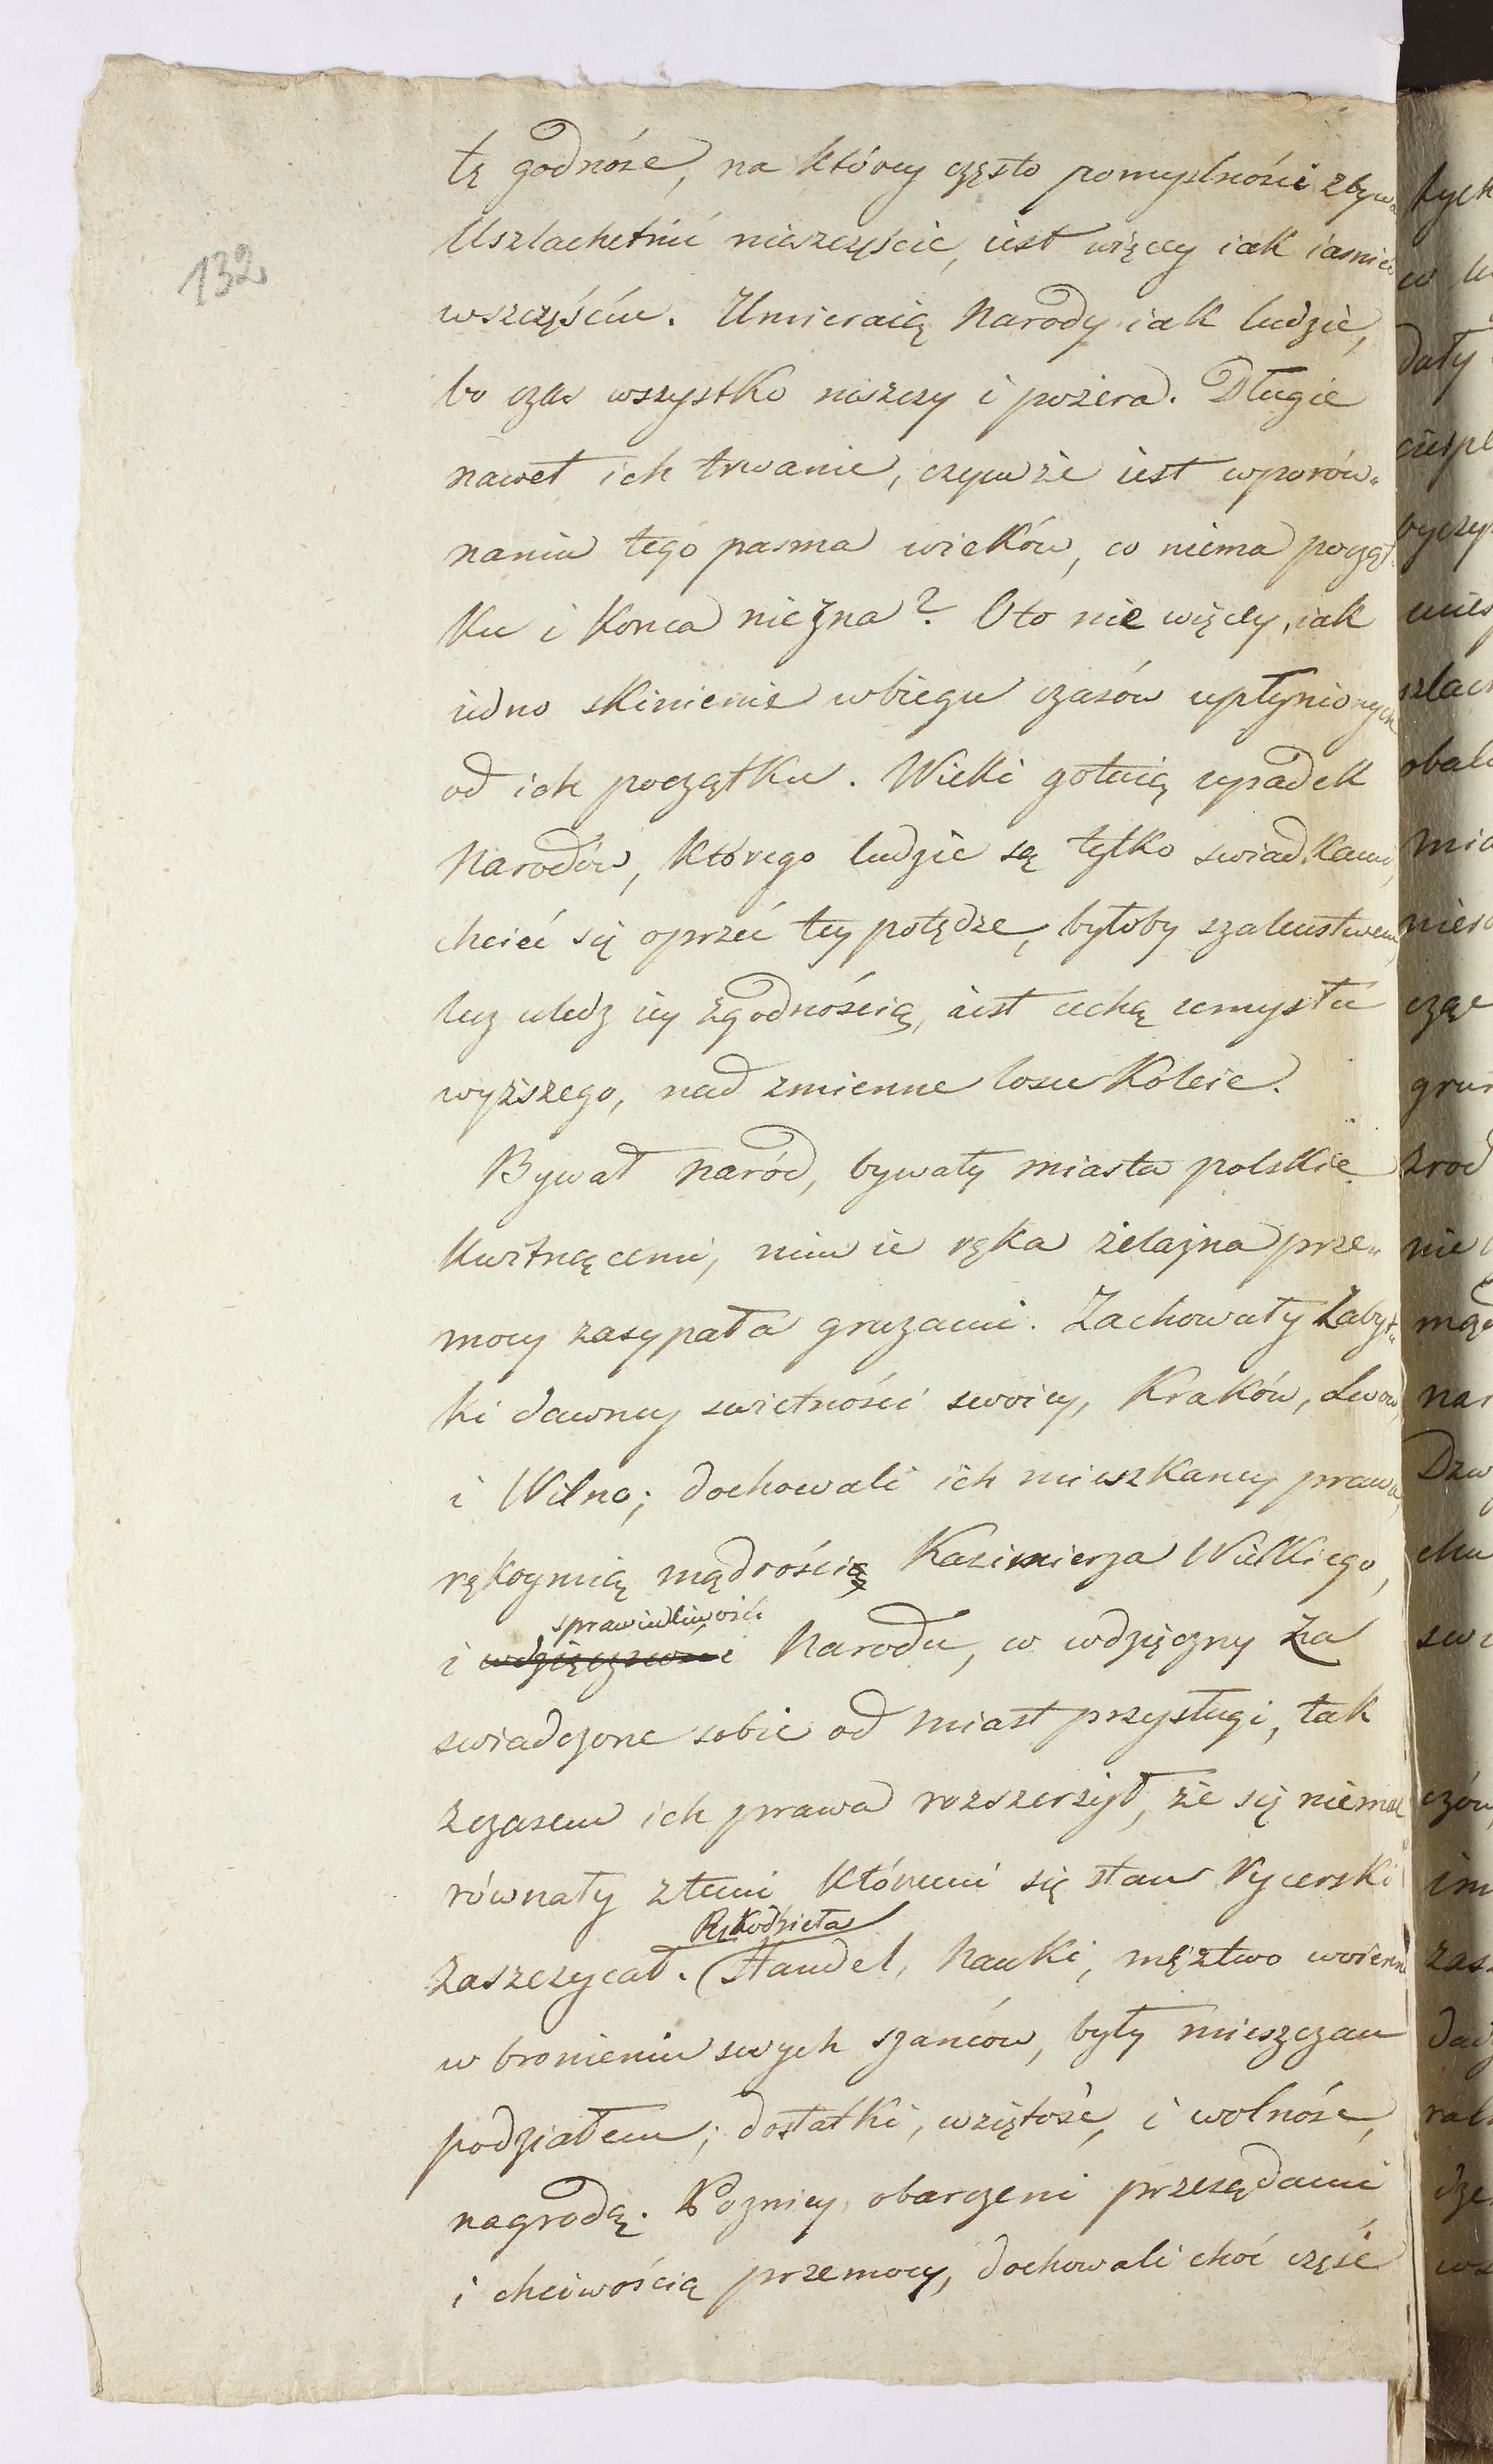 132
tę godnóść, na którey często pomyślności zbywa
Uszlachetnić nieszczęście, iest więcey iak iasnieć
wszczęściu. Umieraią Narody iak ludzie,
bo czas wszystko niszczy i pożera. Długie
nawet ich trwanie, czymże iest wporów„
naniu tego pasma wieków, co niema począt„
ku i konca niezna? Oto nie więcey, iak
iedno skinienie wbiegu czasów upłynionych
od ich początku. Wieki gotuią upadek
Narodów, którego ludzie są tylko swiadkami,
chcieć się oprzeć tey potędze, byłoby szaleństwem,
lecz uledz iey zgodnością, iest cechą umysłu
wyższego, nad zmienne losu koleie.
Bywał naród, bywały miasta polskie
kwitnącemi, nim ie ręka żelazna prze„
mocy zasypała gruzami. Zachowały Zabyt„
ki dawney swietności swoiey, Kraków, Lwów,
i Wilno; dochowali ich mieszkancy prawa,
rękoymią mądrości Kazimierza Wielkiego,
sprawiedliwości
i wdzięcznosci Narodu, co wdzięczny za
swiadczone sobie od miast przysługi, tak
zczasem ich prawa rozszerzył, że się niemal
równały ztemi któremi się stan Rycerski
Rękodzieła
zaszczycał. Handel, Nauki, męztwo woienne
w bronieniu swych szanców, były mieszczan
podziałem; dostatki, wziętość, i wolność,
nagrodą. Pozniey obarczeni przesądami
i chciwością przemocy, dochowali choć część